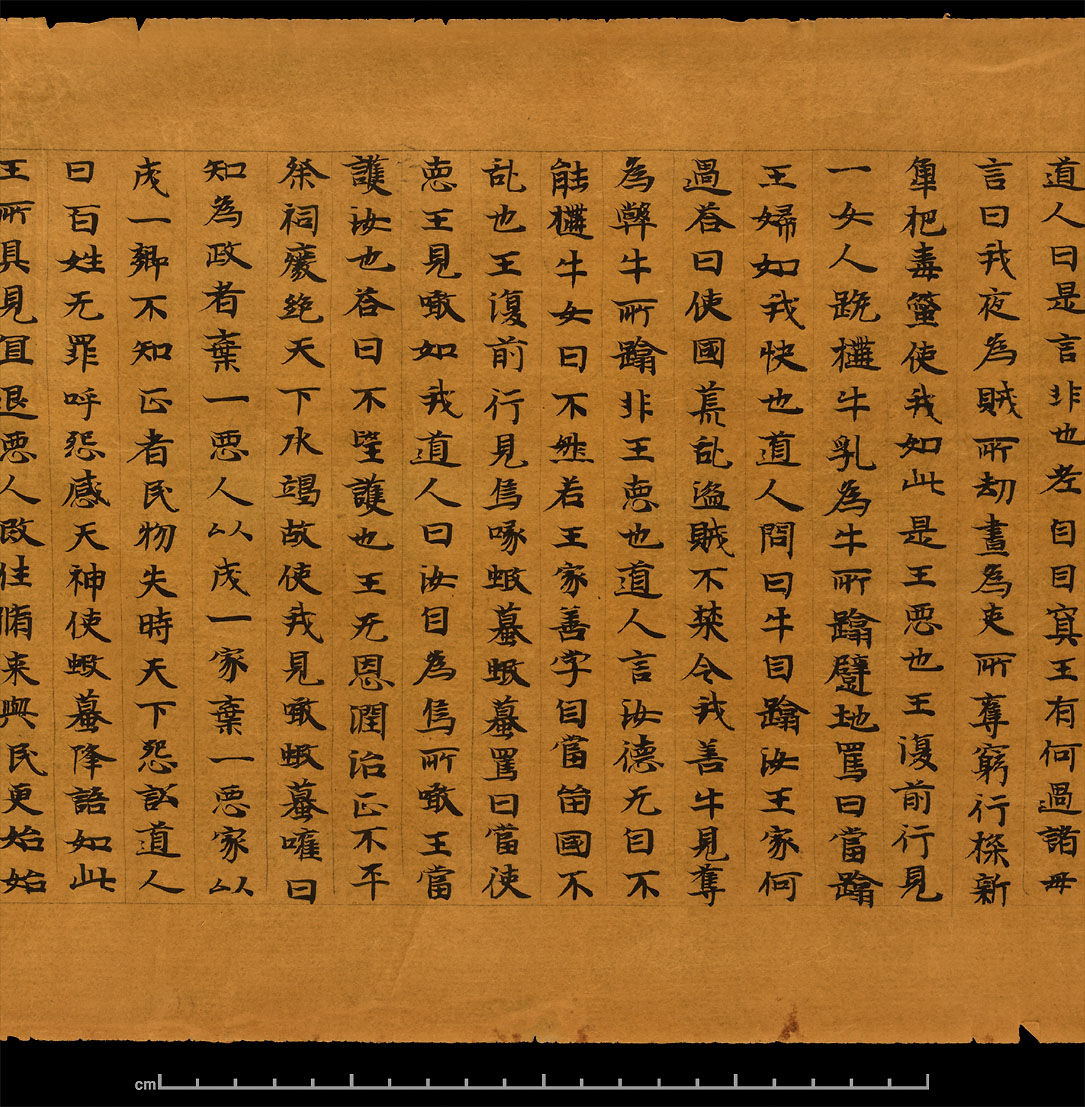 道人曰是言非也老自目冥王有何過諸毋
言曰我夜為賊所劫晝為吏所奪窮行採新
軍把毒螫使我如此是王惡也王復前行見
一女人跪㩧牛乳為牛所蹹躄地罵曰當蹹
王婦如我快也道人問曰牛自蹹汝王家何
過荅曰使國荒乱盜賊不禁令我善牛見奪
為弊牛所蹹非王惡也道人言汝德无自不
能㩧牛女曰不然若王家善学自當留國不
乱也王復前行見烏啄蝦蟇蝦蟇罵曰當使
惡王見噉如我道人曰汝自為烏所噉王當
護汝也荅曰不望護也王无恩潤治正不平
祭祠廢絶天下水竭故使我見噉蝦蟇嚾曰
知為政者棄一惡人以成一家棄一惡家以
成一鄉不知正者民物失時天下怨訟道人
曰百姓无罪呼怨感天神使蝦蟇降語如此
王所具見宜退惡人改往脩来與民更始始